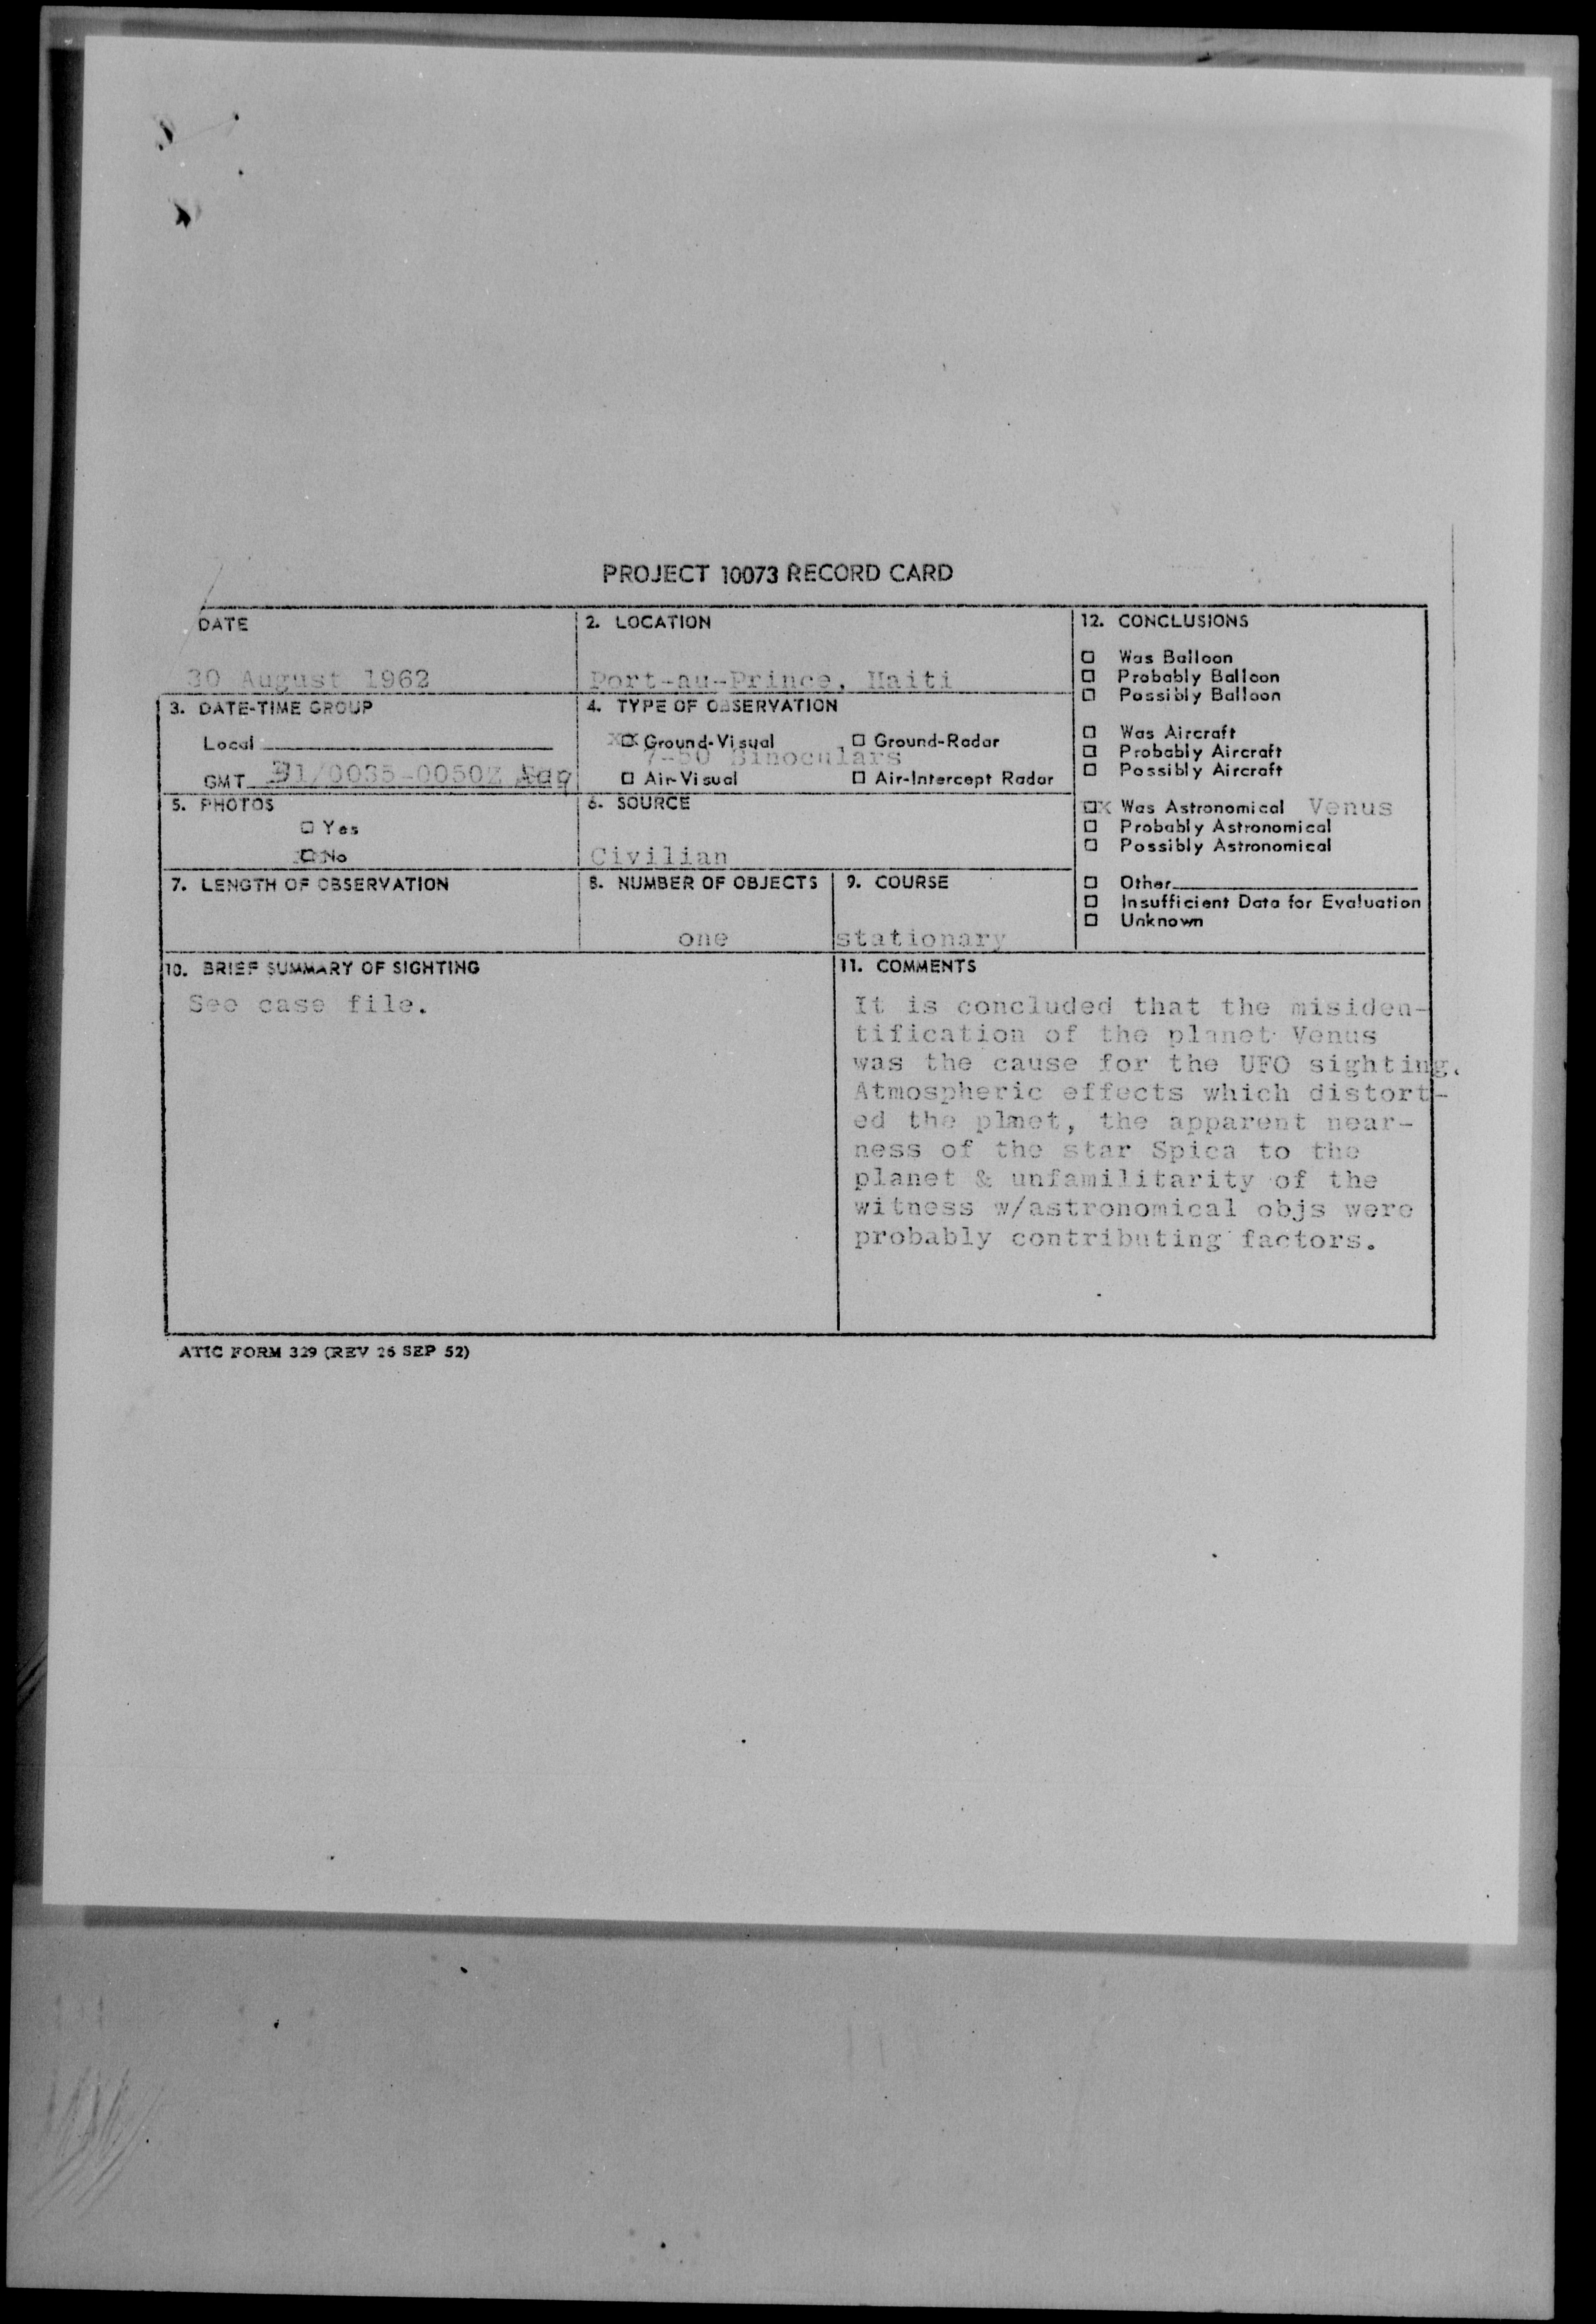 PROJECT 10073 RECORD CARD
DATE
30 August 1962
2. LOCATION
Port-au-Prince, Haiti
3. DATE-TIME GROUP
Local
GMT 31/0035-0050Z
4. TYPE OF OBSERVATION
xx Ground-Visual
Ground-Radar
7-50 Binoculars
Air-Visual
Air-Intercept Radar
5. PHOTOS
Yes
No
6. SOURCE
Civilian
7. LENGTH OF OBSERVATION
8. NUMBER OF OBJECTS
one
9. COURSE
stationary
12. CONCLUSIONS
Was Balloon
Probably Balloon
Possibly Balloon
Was Aircraft
Probably Aircraft
Possibly Aircraft
x Was Astronomical Venus
Probably Astronomical
Possibly Astronomical
Other
Insufficient Data for Evaluation
Unknown
10. BRIEF SUMMARY OF SIGHTING
See case file.
11. COMMENTS
It is concluded that the misiden-
tification of the planet Venus
was the cause for the UFO sighting.
Atmospheric effects which distort-
ed the plmet, the apparent near-
ness of the star Spica to the
planet & unfamilitarity of the
witness w/astronomical objs were
probably contributing factors.
ATIC FORM 329 (REV 26 SEP 52)